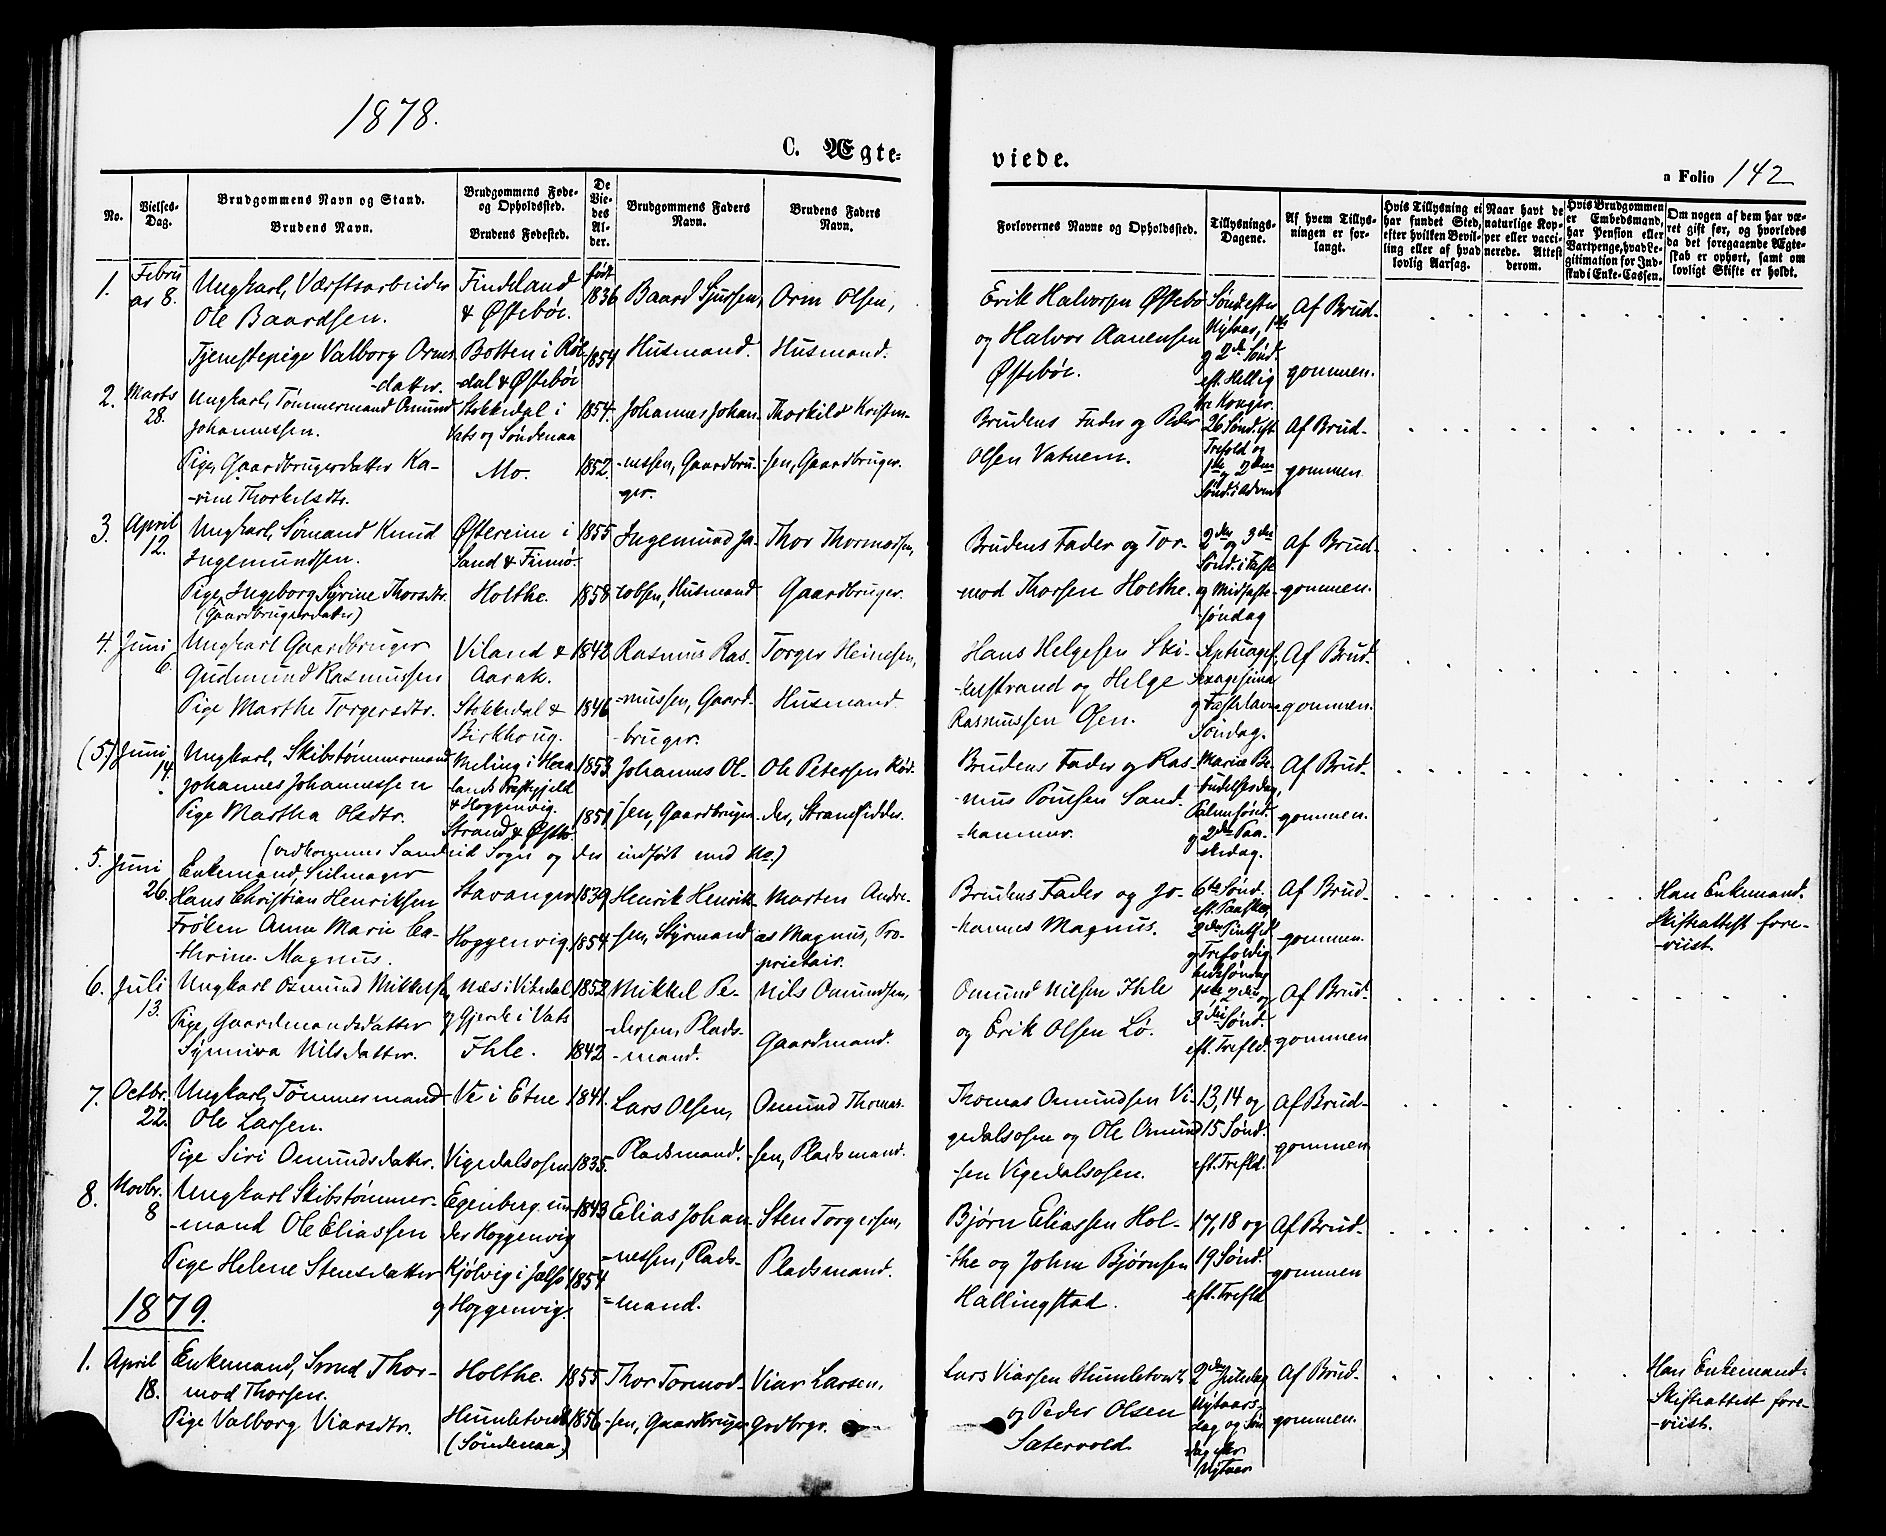 1878.
C. Ægte-
viede.
a Folio 142
No.
Vielses-
Dag.
Brudgommens Navn og Stand.
Brudens Navn.
Brudgommens Føde-
og Opholdssted.
Brudens Fødested.
De
Vie-
des
Al-
der.
Brudgommens Faders
Navn.
Brudens Faders
Navn.
Forlovernes Navne og Opholdssted.
Tillysnings-
Dagene.
Af hvem Tillys-
ningen er for-
langt.
Hvis Tillysning ei
har fundet Sted,
efter hvilken Bevil-
ling eller af hvad
lovlig Aarsag.
Naar havt de
naturlige Kop-
per eller vacci-
nerede. Attest
derom.
Hvis Brudgommen
er Embedsmand,
har Pension eller
Vartpenge, hvad Le-
gitimation for Ind-
skud i Enke-Cassen.
Om nogen af dem har væ-
ret gift før, og hvorledes
da det foregaaende Ægte-
skab er ophørt, samt om
lovligt Skifte er holdt.
1.
Febru
ar 8.
Ungkarl, Værftsarbeider
Ole Baardsen.
Tjenestepige Valborg Orms-
-datter.
Findeland
& Østebøe.
Botten i Røl-
-dal & Østebøe
født
1836
1854
Baard Sjursen,
Husmand.
Orm Olsen,
Husmand.
Erik Halvorsen Østebø
og Halvor Aanensen
Østebøe.
Sønd. efter
Nytaar, 1ste
og 2den Sønd.
eft. Hellig
tre Konger.
Af Brud-
gommen.
2.
Marts
28.
Ungkarl, Tømmermand Omund
Johannessen.
Pige, Gaardbrugerdatter Ka-
-rine Thorkelsdtr.
Stokkedal i
Vats og Søndenaa
Mo.
1854.
1852.
Johannes Johan-
-nessen, Gaardbru-
ger.
Thorkild Kristen-
-sen, Gaardbruger.
Brudens Fader og Peder
Olsen Vatnem.
26 Sønd. eft.
Trefold og
1ste og 2den
Sønd. i Advent
Af Brud-
gommen
3.
April
12.
Ungkarl, Sømand Knud
Ingemundsen.
Pige, Ingeborg Syrine Thorsdtr.
(Gaardbrugerdatter)
Østereim i
Sand & Finnø.
Holthe.
1855
1858
Ingemund Ja-
cobsen, Husmand
Thor Thormodsen,
Gaardbruger.
Brudens Fader og Tor-
mod Thorsen Holthe.
2den og 3die
Sønd. i Faste
og Midfaste-
søndag
Af Brud-
gommen.
4.
Juni
6.
Ungkarl Gaardbruger
Gudmund Rasmussen
Pige Marthe Torgersdtr.
Viland &
Aarak.
Stokkedal &
Birkhoug.
1842
1846
Rasmus Ras-
-mussen, Gaard-
-bruger.
Torger Heinesen,
Husmand.
Hans Helgesen Ski-
-kelstrand og Helge
Rasmussen Osen.
Septuages.,
Sexagesima
og Fastelavns-
Søndag.
Af Brud-
gommen.
(5)
Juni
14.
Ungkarl, Skibstømmermand
Johannes Johannessen
Pige Martha Olsdtr.
Meling i Hou-
lands Præstegjeld
& Hoggenvig.
Strand & Østebø
1853.
1851
Johannes Ol-
-sen, Gaardbruger
Ole Petersen Kød-
-der, Strandsidder.
Brudens Fader og Ras-
mus Poulsen Sand-
=hammer.
Mariæ Be-
budelsesdag,
Palmesønd.
og 2den Paa-
skedag.
Af Brud-
gommen.
(vedkommer Sandeid Sogn og der indført med No.)
5.
Juni
26.
Enkemand, Seilmager
Hans Christian Henriksen
Frøken Anne Marie Ca-
thrine Magnus.
Stavanger
Hoggenvig.
1839
1854
Henrik Henrik-
sen, Styrmand
Morten Andre-
as Magnus, Pro-
prietair.
Brudens Fader og Jo-
-hannes Magnus.
6te Sønd.
eft. Paaske,
2den Pintsed.
og Trefoldig-
hedssøndag
Af Brud-
gommen.
Han Enkemand.
Skifteattest fore-
-viist.
6.
Juli
13.
Ungkarl Osmund Mikkelsen
Pige, Gaardmandsdatter
Synniva Nilsdatter.
Næs i Vikedal
og Gjerde i Vats
Ihle.
1852
1842
Mikkel Pe-
-dersen, Plads-
-mand.
Nils Omundsen,
Gaardmand.
Omund Nilsen Ihle
og Erik Olsen Lø.
1ste, 2den og
3die Sønd.
eft. Trefld.
Af Brud-
gommen
7.
Octbr.
22.
Ungkarl, Tømmermand
Ole Larsen.
Pige Siri Omundsdatter.
Ve i Etne
Vigedalsosen
1841.
1835.
Lars Olsen,
Pladsmand.
Omund Thomas-
sen, Pladsmand.
Thomas Omundsen Vi-
gedalsosen og Ole Omund-
sen Vigedalsosen.
13, 14 og
15 Sønd.
eft. Trefld.
Af Brud-
gommen
8.
Novbr.
8
Ungkarl Skibstømmer-
-mand Ole Eliassen
Pige Helene Stensdatter
Egenberg un-
der Hoggenvig
Kjølvig i Jælsø
og Hoggenvig.
1843
1854
Elias Johan-
=nessen, Plads-
=mand.
Sten Torgersen,
Pladsmand.
Bjørn Eliassen Hol-
-the og John Bjørnsen
Hallingstad.
17, 18 og
19 Sønd.
eft. Trefld
Af Brud-
gommen
1879.
1.
April
18.
Enkemand, Smed Thor-
mod Thorsen.
Pige Valborg Viarsdtr.
Holthe.
Humletvedt
(Søndenaa)
1855
1856
Thor Tormod-
-sen, Gaardbruger
Viar Larsen,
Grdbrgr.
Lars Viarsen Humletvedt
og Peder Olsen
Sætervold.
2den Juledag
Nytaars-
dag og Søn-
dag efter
Nytaar
Af Brud-
gommen.
Han Enkemand-
Skifteattest fore-
-viist.